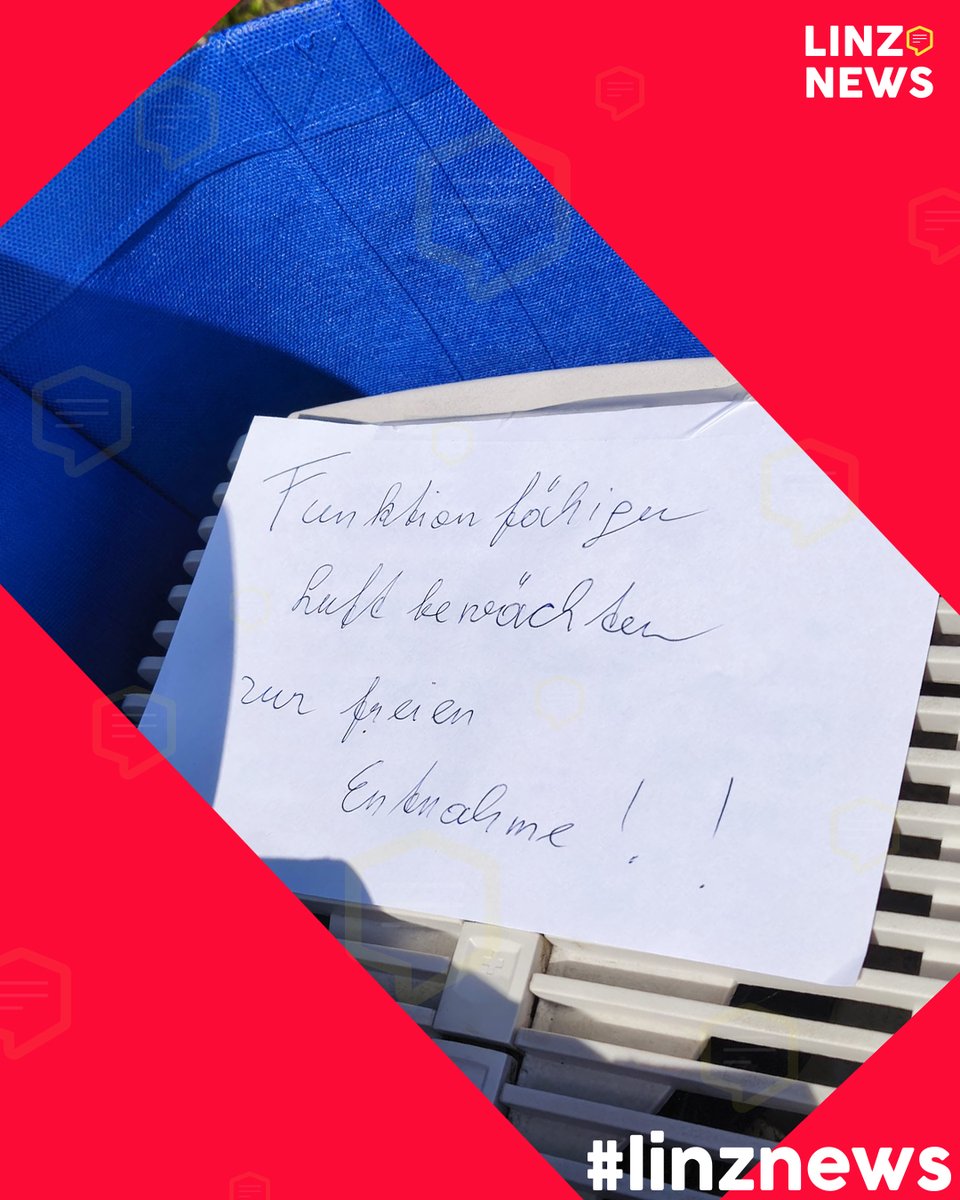 LINZ
NEWS
Funktionsfähiger
Luftbewächten
zur freien
Entnahme ! !
#linznews